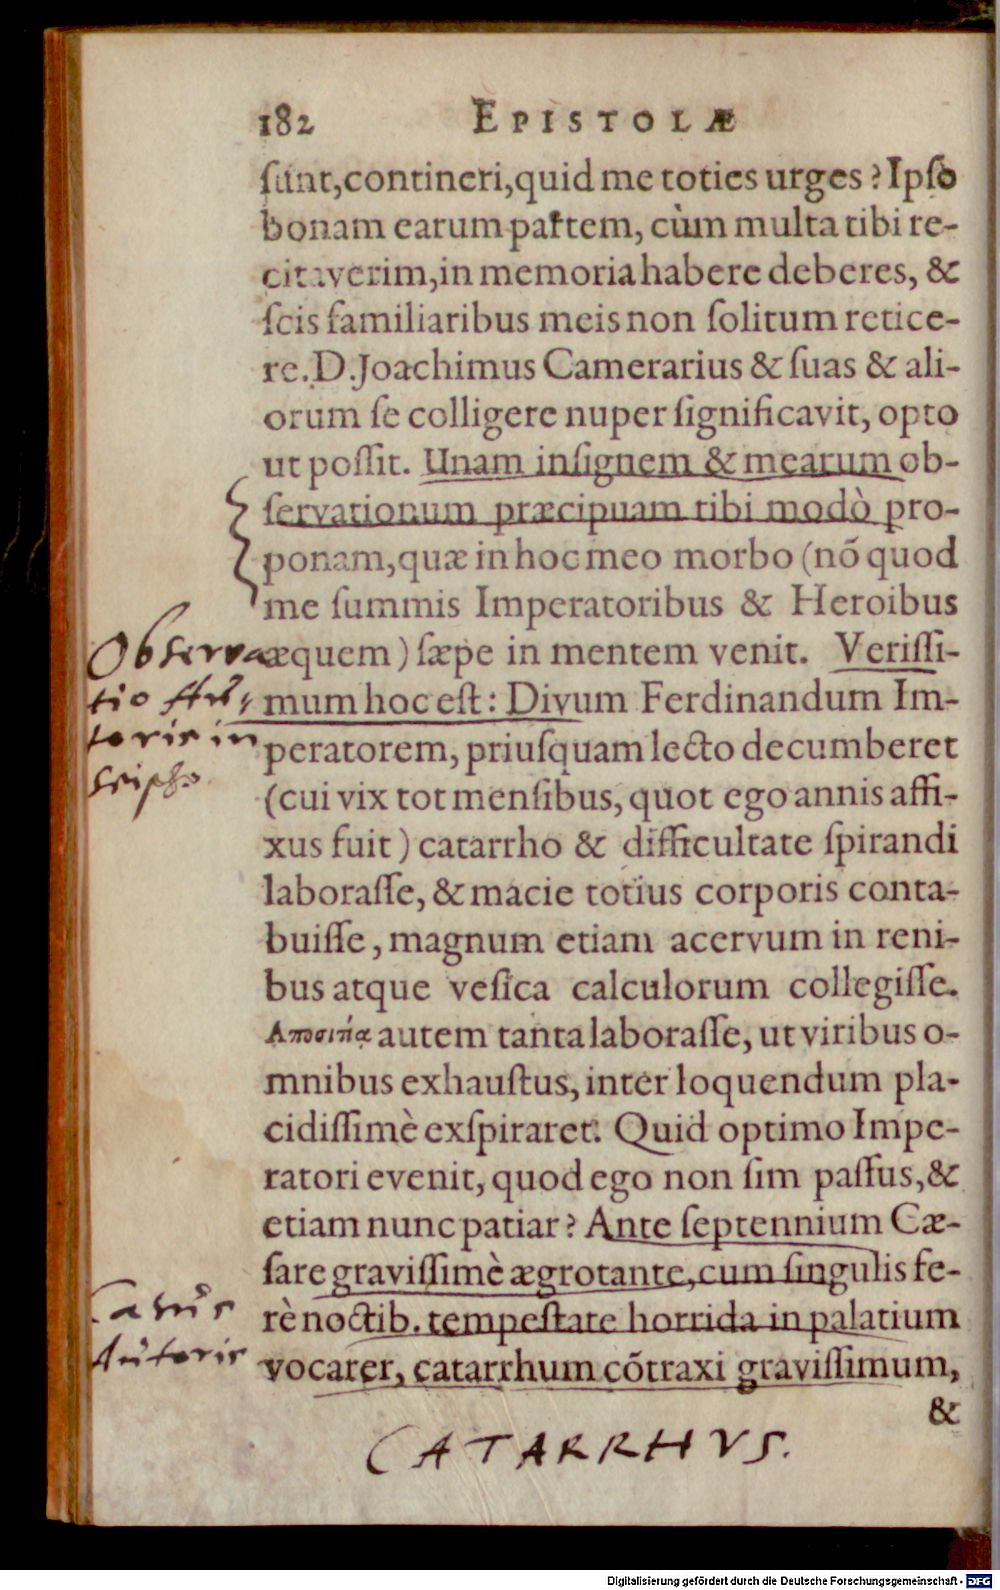 182 EPISTOLÆ
sunt, contineri, quid me toties urges? Ipse
bonam earum partem, cùm multa tibi re-
citaverim, in memoria habere deberes, &
ſcis familiaribus meis non ſolitum retice-
re. D. Joachimus Camerarius & ſuas & ali-
orum ſe colligere nuper ſignificavit, opto
ut poſſit. Unam inſignem & mearum ob-
ſervationum præcipuam tibi modò pro-
ponam, quæ in hoc meo morbo (nõ quod
me ſummis Imperatoribus & Heroibus
æquem) ſæpe in mentem venit. Veriſſi-
mum hoc eſt: Divum Ferdinandum Im-
peratorem, priuſquam lecto decumberet
(cui vix tot menſibus, quot ego annis affi-
xus fuit) catarrho & difficultate ſpirandi
laboraſſe, & macie totius corporis conta-
buiſſe, magnum etiam acervum in reni-
bus atque veſica calculorum collegiſſe.
Ἀποσιτίᾳ autem tanta laboraſſe, ut viribus o-
mnibus exhauſtus, inter loquendum pla-
cidiſſimè exſpiraret. Quid optimo Impe-
ratori evenit, quod ego non ſim paſſus, &
etiam nunc patiar? Ante ſeptennium Cæ-
ſare graviſſimè ægrotante, cum ſingulis fe-
rè noctib. tempeſtate horrida in palatium
vocarer, catarrhum cõtraxi graviſſimum,
&
Observa
tio Au-
toris in
seipso
Casus
Autoris
CATARRHVS.
Digitalisierung gefördert durch die Deutsche Forschungsgemeinschaft - DFG